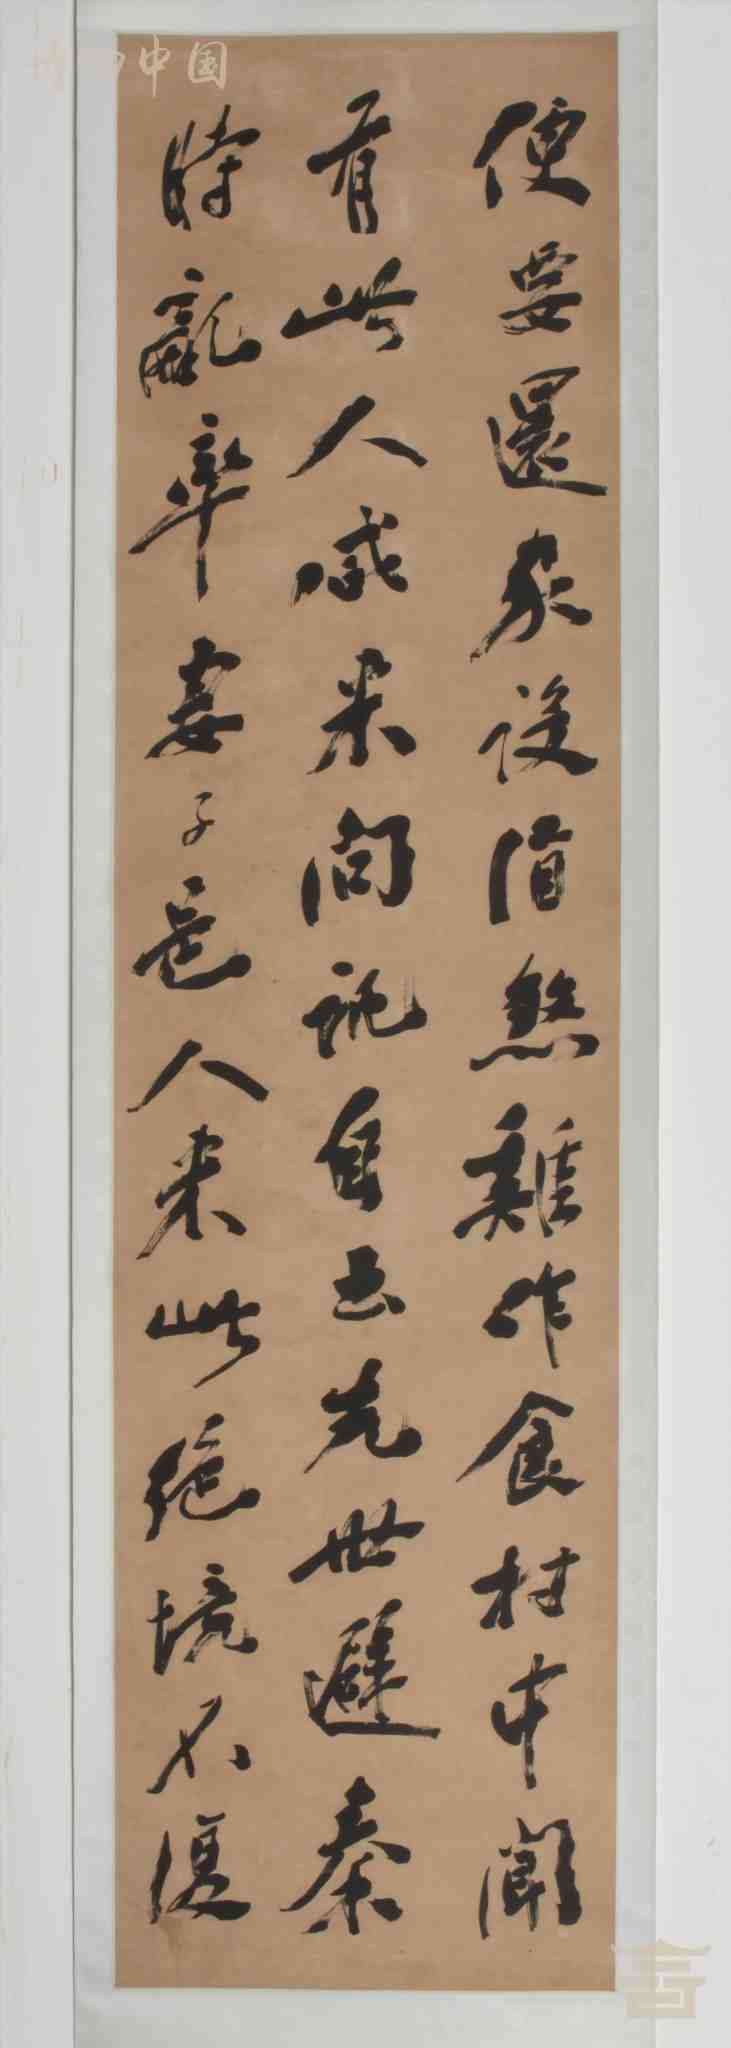 便要還家設酒煞雞作食村中聞
有此人咸来問訊自云先世避秦
時亂率妻子邑人来此絶境不復
中国